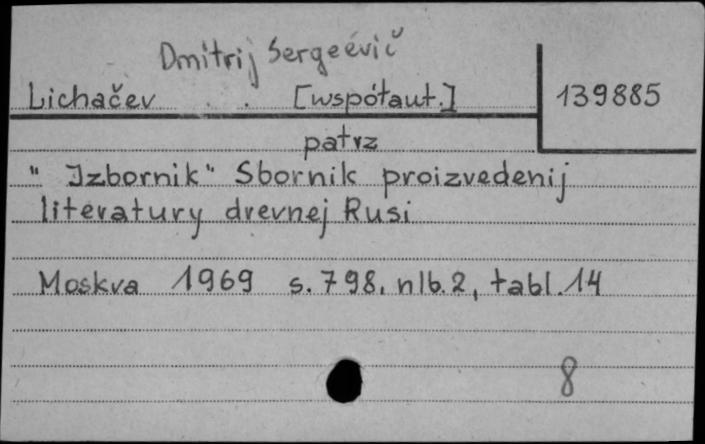 Dmitrij Sergeevič
Lichačev . . [współaut.] 139885
patrz
" Izbornik" Sbornik proizvedenij
literatury drevnej Rusi
Moskva 1969 s. 798, nlb. 2, tabl. 14
8